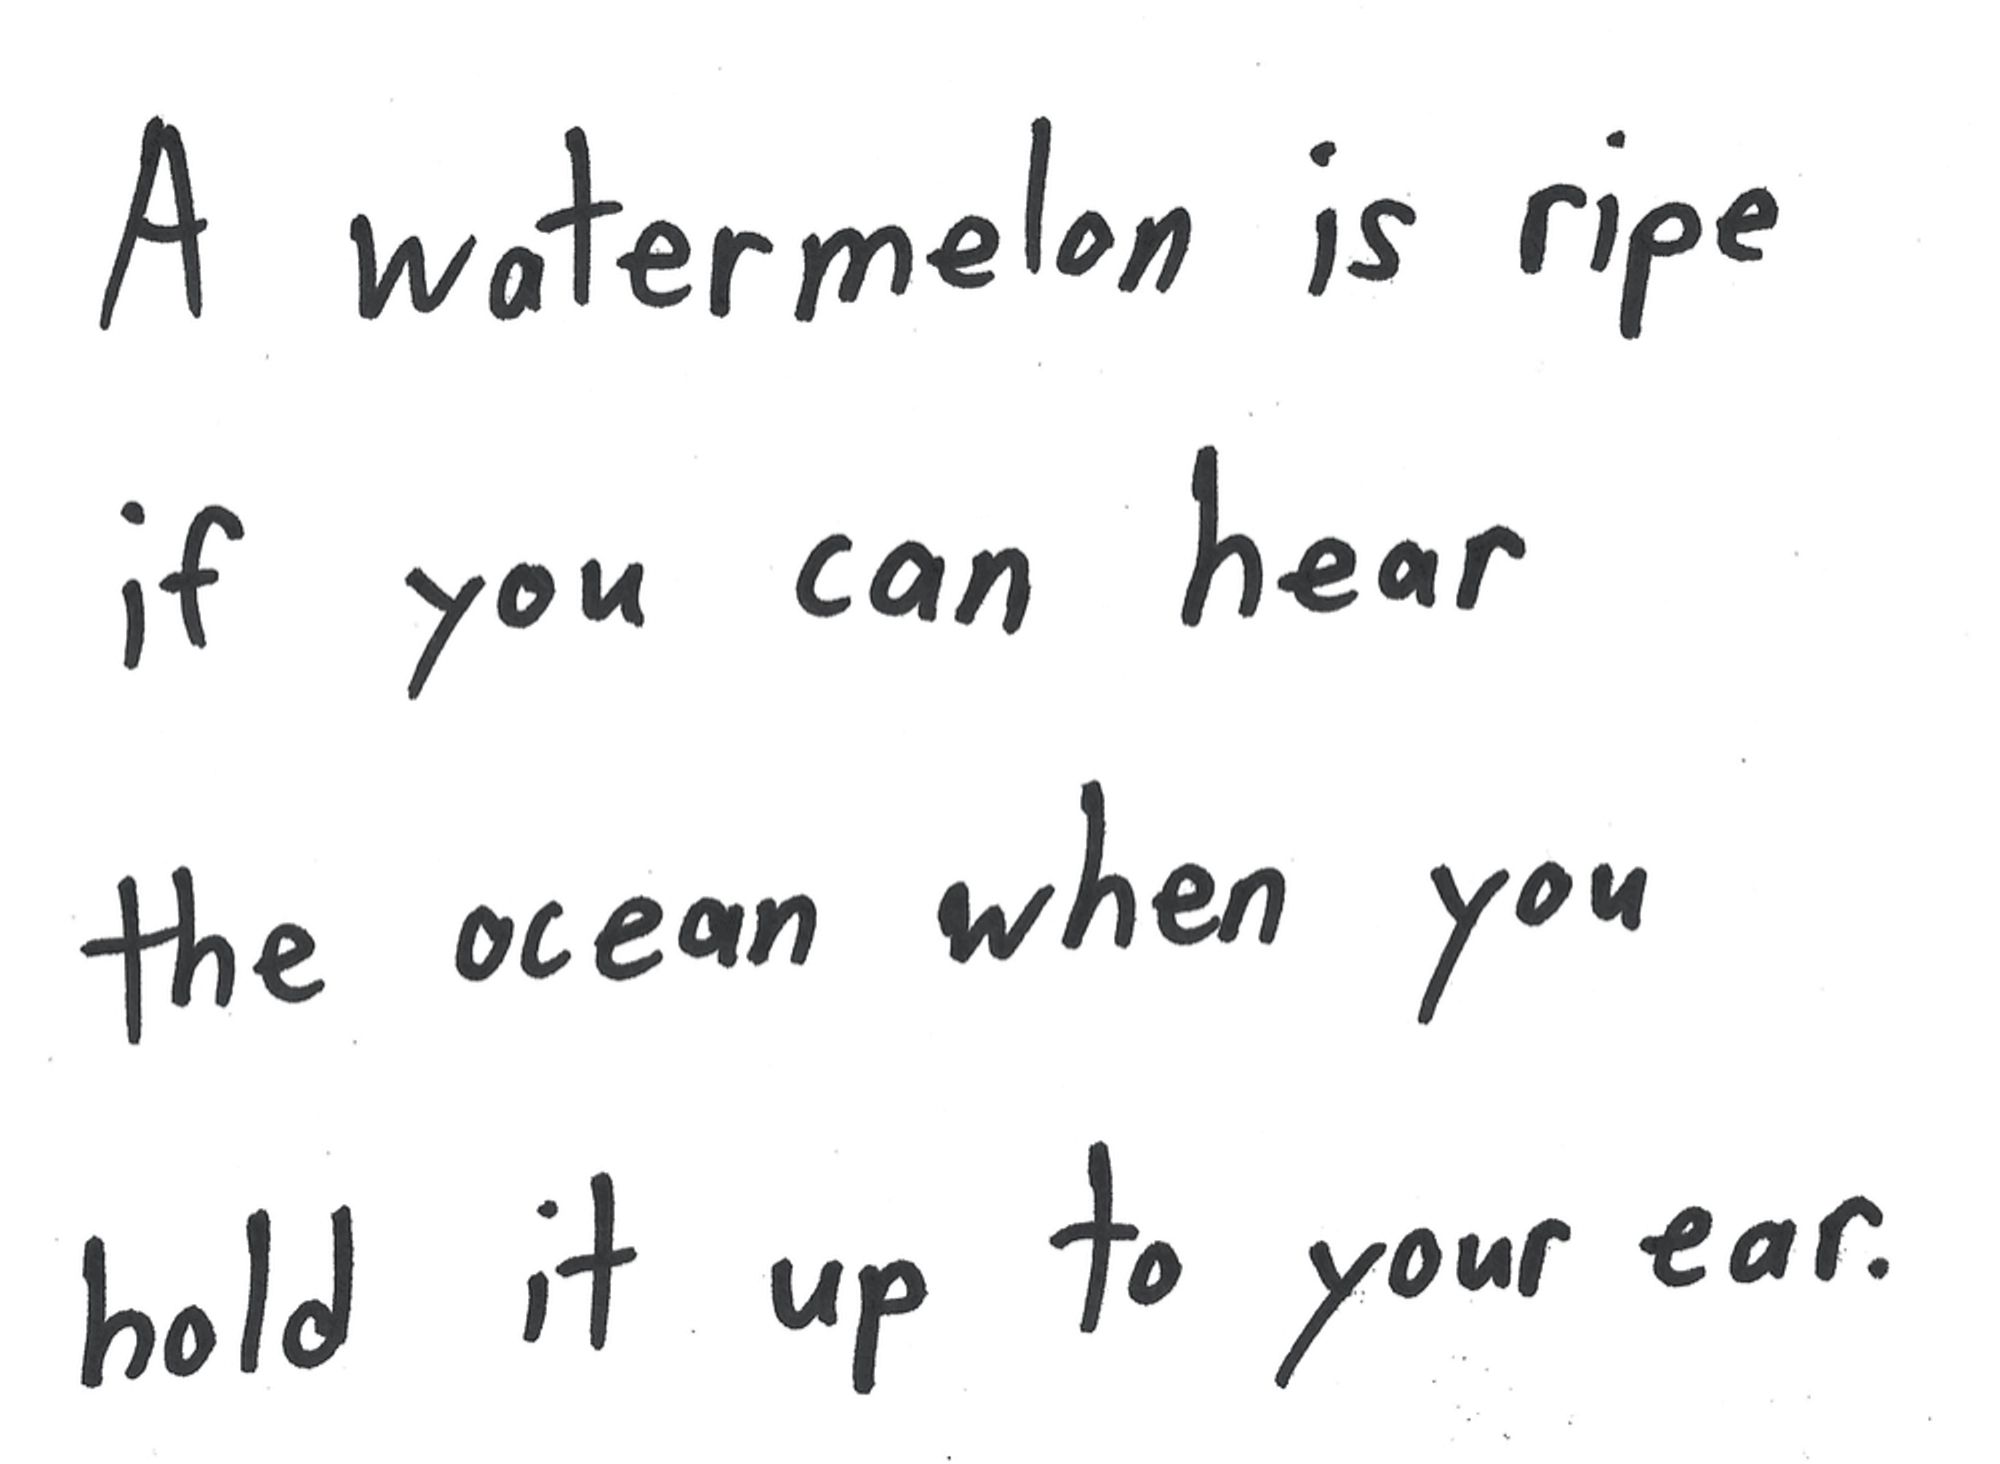 A watermelon is ripe
if you can hear
the ocean when you
hold it up to your ear.